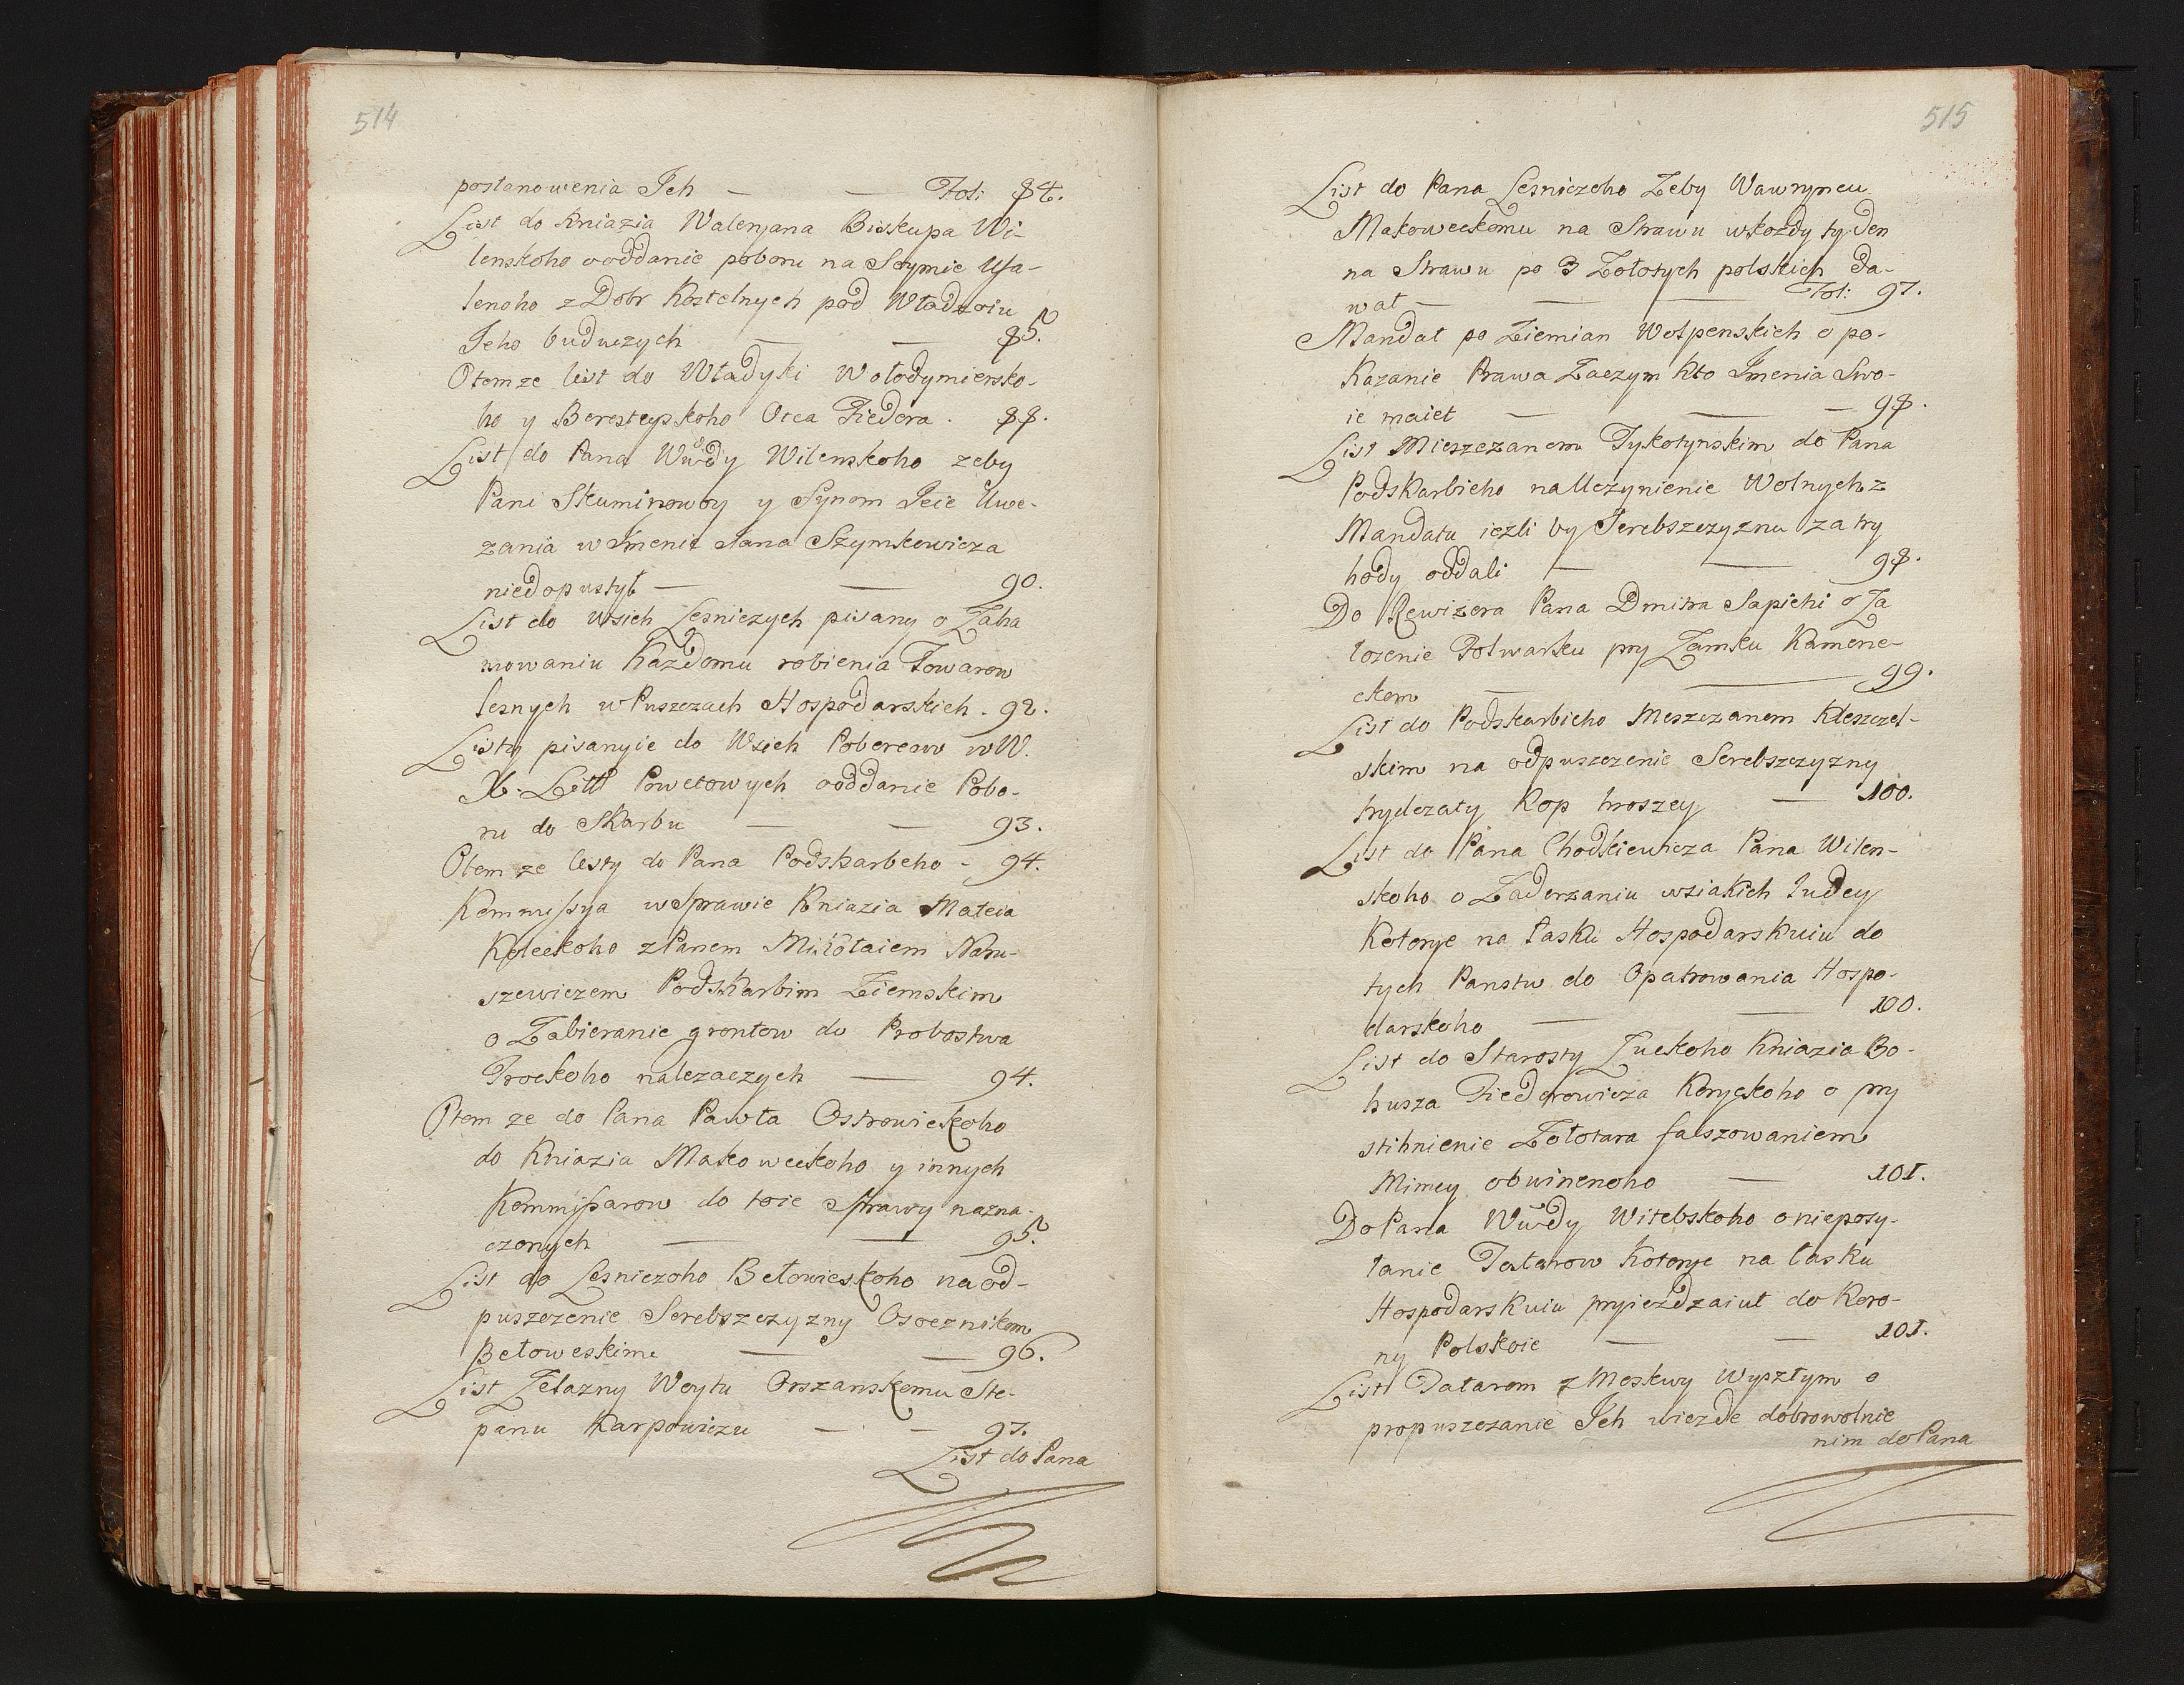 514
postanowienia Jch — — Fol: 84.
List do Kniazia Waleryana Biskupa Wi-
lenskoho ooddanie poboru na Seymie Ufa-
lenoho z Dobr Kostelnych pod Władzoiu
Jeho buduczych — — 85.
Otemze list do Władyki Wołodymiersko-
ho y Beresteyskoho Otca Fiedera. 88.
List do Pana Wwdy Wilenskoho zeby
Pani Skuminowoy y Synom Jeie Uwe-
zania w Jmenie Jana Szymkowicza
niedopustył — — 90.
List do wsich Lesniczych pisany o Zaha
mowaniu Kazdomu robienia Towarow
lesnych w Puszczach Hospodarskich. 92.
Listy pisanyie do Wsich Poborcaw w W.
X. Litt Powetowych ooddanie Pobo-
ru do Skarbu — — 93.
Otem ze listy do Pana Podskarbeho - 94.
Kommissya w Sprawie Kniazia Mateia
Koleckoho z Panem Mikołaiem Naru-
szewiczem Podskarbim Ziemskim
o Zabieranie grontow do Probostwa
Trockoho nalezaczych — 94.
Otem ze do Pana Pawła Ostrowickoho
do Kniazia Makoweckoho y innych
Kommissarow do toie Sprawy nazna-
czonych — — 95.
List do Lesniczoho Bełowieskoho na od-
puszczenie Serebszczyzny Osocznikom
Bełoweskim — — 96.
List Zelazny Woytu Orszanskemu Ste-
panu Karpowiczu — — 97.
List do Pana
515
List do Pana Lesniczoho Zeby Wawryncu
Makoweckomu na Strawu wkozdy tyden
na Strawu po 3 Zołotych polskich da-
wał — — — Fol: 97.
Mandat po Ziemian Wołpenskich o po-
kazanie Prawa Zaczym Kto Jmenia Swo-
ie maiet — — — 98.
List Mieszczanom Tykotynskim do Pana
Podskarbieho na Uczynienie Wolnych z
Mandatu iezli by Serebszczyznu za try
hody oddali — — 98.
Do Rewizera Pana Dmitra Sapichi o Za
lozenie Folwarku pry Zamku Kamene-
ckom — — 99.
List do Podskarbieho Meszczanom Kleszczel-
skim na odpuszczenie Serebszczyzny
trydczaty Kop hroszey — 100.
List do Pana Chodkiewicza Pana Wilen-
skoho o Zaderzaniu wsiakich ludey
Kotorye na łasku Hospodarskuiu do
tych Panstw do Opatrowania Hospo-
darskoho — — 100.
List do Starosty Łuckoho Kniazia Bo-
husza Fiedorowicza Koryckoho o pry
stihnienie Zołotara fałszowaniem
Mimcy obwinenoho — 101.
Do Pana Wwdy Witebskoho o nieposy-
łanie Tatarow Kotorye na łasku
Hospodarskuiu pryieżdzaiut do Koro-
ny Polskoie — — 101.
List Tatarom z Moskwy Wyszłym o
propuszczanie Jch wiezde dobrowolnie
nim do Pana